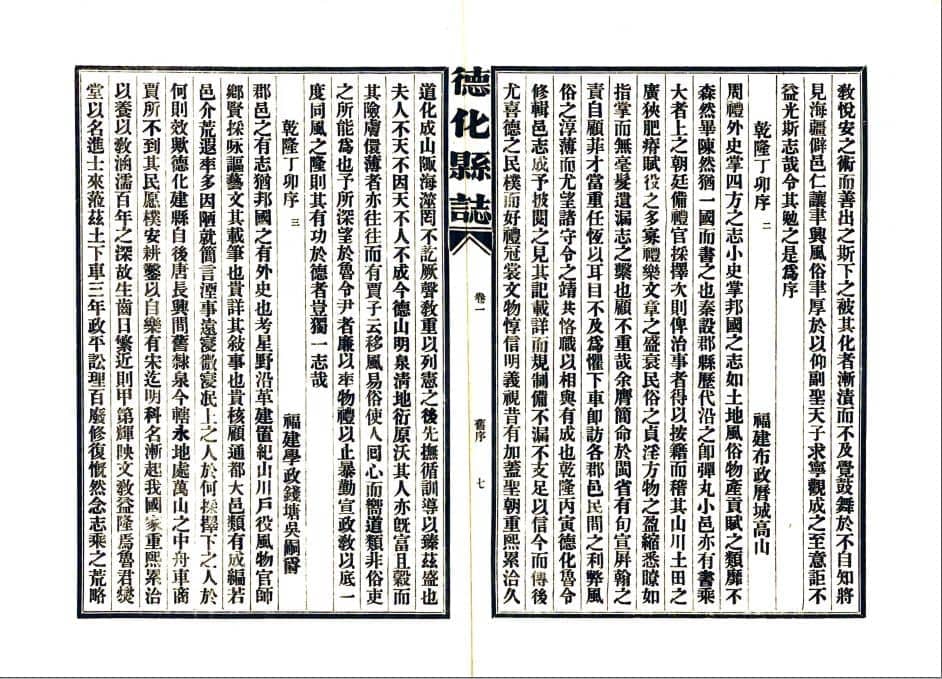 敎悅安之術而善出之斯下之被其化者漸漬而不及覺鼓舞於不自知將
見海疆僻邑仁讓聿興風俗聿厚於以仰副聖天子求寧觀成之至意詎不
益光斯志哉令其勉之是爲序
乾隆丁卯序 二
福建布政曆城高山
周禮外史掌四方之志小史掌邦國之志如土地風俗物產貢賦之類靡不
森然畢陳然猶一國而書之也秦設郡縣歷代沿之卽彈丸小邑亦有書乘
大者上之朝廷備禮官採擇次則俾治事者得以按籍而稽其山川土田之
廣狹肥瘠賦役之多寡禮樂文章之盛衰民俗之貞淫方物之盈縮悉瞭如
指掌而無毫髮遺漏志之繫也顧不重哉余膺簡命於閩省有旬宣屏翰之
責自顧菲才當重任恆以耳目不及爲懼下車卽訪各郡邑民間之利弊風
俗之淳薄而尤望諸守令之靖共恪職以相與有成也乾隆丙寅德化魯令
修輯邑志成予披閱之見其記載詳而規制備不漏不支足以信今而傳後
尤喜德之民樸而好禮冠裳文物惇信明義視昔有加蓋聖朝重熙累治久
德化縣誌
卷一
舊序
七
道化成山陬海澨罔不訖厥聲敎重以列憲之後先撫循訓導以臻茲盛也
夫人不天不因天不人不成今德山明泉淸地衍原沃其人亦旣富且穀而
其險膚儇薄者亦往往而有賈子云移風易俗使人囘心而嚮道類非俗吏
之所能爲也予所深望於魯令尹者廉以率物禮以止暴勤宣政敎以底一
度同風之隆則其有功於德者豈獨一志哉
乾隆丁卯序 三
福建學政錢塘吳嗣爵
郡邑之有志猶邦國之有外史也考星野沿革建置紀山川戶役風物官師
鄕賢採咏謳藝文其載筆也貴詳其敍事也貴核顧通都大邑類有成編若
邑介荒遐率多因陋就簡言湮事遠寖微寖泯上之人於何採擇下之人於
何則效歟德化建縣自後唐長興間舊隸泉今轄永地處萬山之中舟車商
賈所不到其民愿樸安耕鑿以自樂有宋迄明科名漸起我國家重熙累治
以養以敎涵濡百年之深故生齒日繁近則甲第輝映文敎益隆焉魯君燮
堂以名進士來蒞茲土下車三年政平訟理百廢修復慨然念志乘之荒略